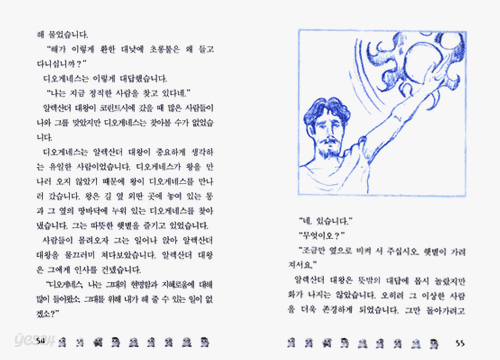 해 물었습니다.
“해가 이렇게 환한 대낮에 초롱불은 왜 들고
다니십니까?”
디오게네스는 이렇게 대답했습니다.
“나는 지금 정직한 사람을 찾고 있다네.”
알렉산더 대왕이 코린트시에 갔을 때 많은 사람들이
나와 그를 맞았지만 디오게네스는 찾아볼 수가 없었습
니다.
디오게네스는 알렉산더 대왕이 중요하게 생각하
는 유일한 사람이었습니다. 디오게네스가 왕을 만
나러 오지 않았기 때문에 왕이 디오게네스를 만나
러 갔습니다. 왕은 길 옆 외딴 곳에 놓여 있는 통
과 그 옆의 땅바닥에 누워 있는 디오게네스를 찾아
냈습니다. 그는 따뜻한 햇볕을 즐기고 있었습니다.
사람들이 몰려오자 그는 일어나 앉아 알렉산더
대왕을 물끄러미 쳐다보았습니다. 알렉산더 대왕
은 그에게 인사를 건넸습니다.
“디오게네스, 나는 그대의 현명함과 지혜로움에 대해
많이 들어왔소. 그대를 위해 내가 해 줄 수 있는 일이 없
겠소?”
54
yes24
“네, 있습니다.”
“무엇이오?”
“조금만 옆으로 비켜 서 주십시오. 햇볕이 가려
져서요.”
알렉산더 대왕은 뜻밖의 대답에 몹시 놀랐지만
화가 나지는 않았습니다. 오히려 그 이상한 사람
을 더욱 존경하게 되었습니다. 그만 돌아가려고
55